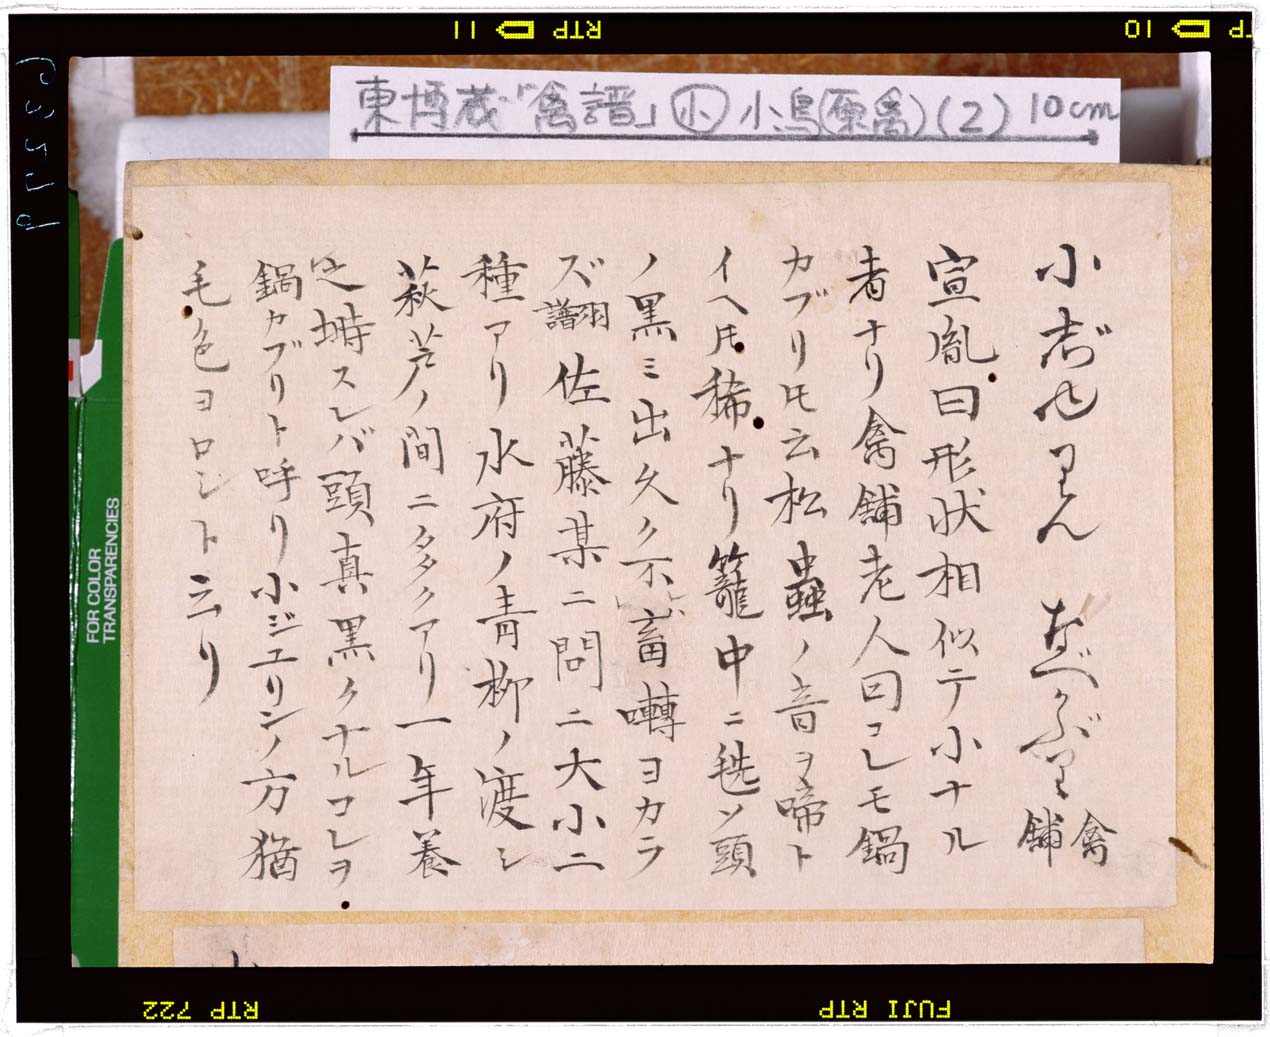 RTP
11
10
RTP
東博蔵「禽譜」㊥小鳥(原禽)(2) 10cm
小志゛ゆりん なべかぶり 禽舗
宣胤曰形状相似テ小ナル
者ナリ禽舗老人曰コレモ鍋
カブリトモ云松蟲ノ音ヲ啼ト
イヘトモ稀ナリ籠中ニ毪ソ頭
ノ黒ミ出久ク不畜囀ヨカラ
ズ翻譜佐藤某ニ問ニ大小二
種アリ水府ノ青柳ノ渡シ
萩芦ノ間ニタタクアリ一年養
之塒スレバ頭真黒クナルコレヲ
鍋カブリト呼リ小ジユリンノ方猶
毛色ヨロシト云リ
FOR COLOR
TRANSPARENCIES
RTP 722
FUJI RTP